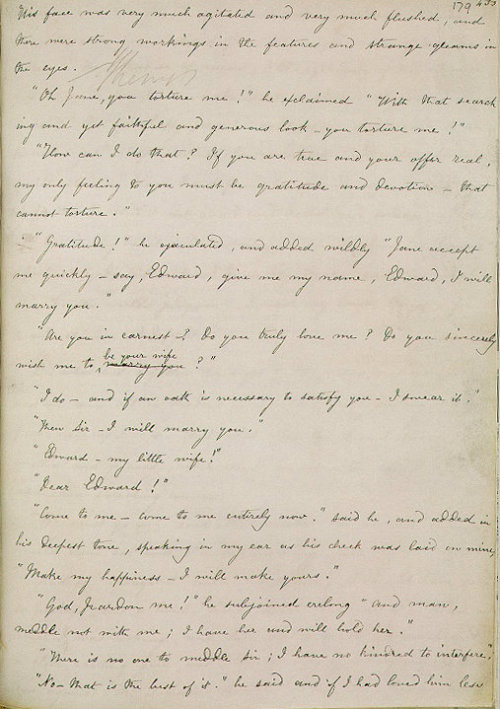 179 433
His face was very much agitated and very much flushed, and
there were strong workings in the features and strange gleams in
the eyes.
"Oh Jane, you torture me!" he exclaimed "With that search
ing and yet faithful and generous look – you torture me!"
"How can I do that? If you are true and your offer real,
my only feeling to you must be gratitude and devotion – that
cannot torture."
"Gratitude!" he ejaculated, and added wildly "Jane accept
me quickly – say, Edward, give me my name, Edward, I will
marry you."
"Are you in earnest –? Do you truly love me? Do you sincerely
be your wife
wish me to marry you?"
"I do – and if an oath is necessary to satisfy you – I swear it."
"Then Sir – I will marry you."
"Edward – my little wife!"
"Dear Edward!"
"Come to me – come to me entirely now." said he, and added in
his deepest tone, speaking in my ear as his cheek was laid on mine,
"Make my happiness – I will make yours."
"God, pardon me!" he subjoined erelong "and man,
meddle not with me; I have her and will hold her."
"There is no one to meddle Sir; I have no kindred to interfere".
"No – that is the best of it." he said and if I had loved him less